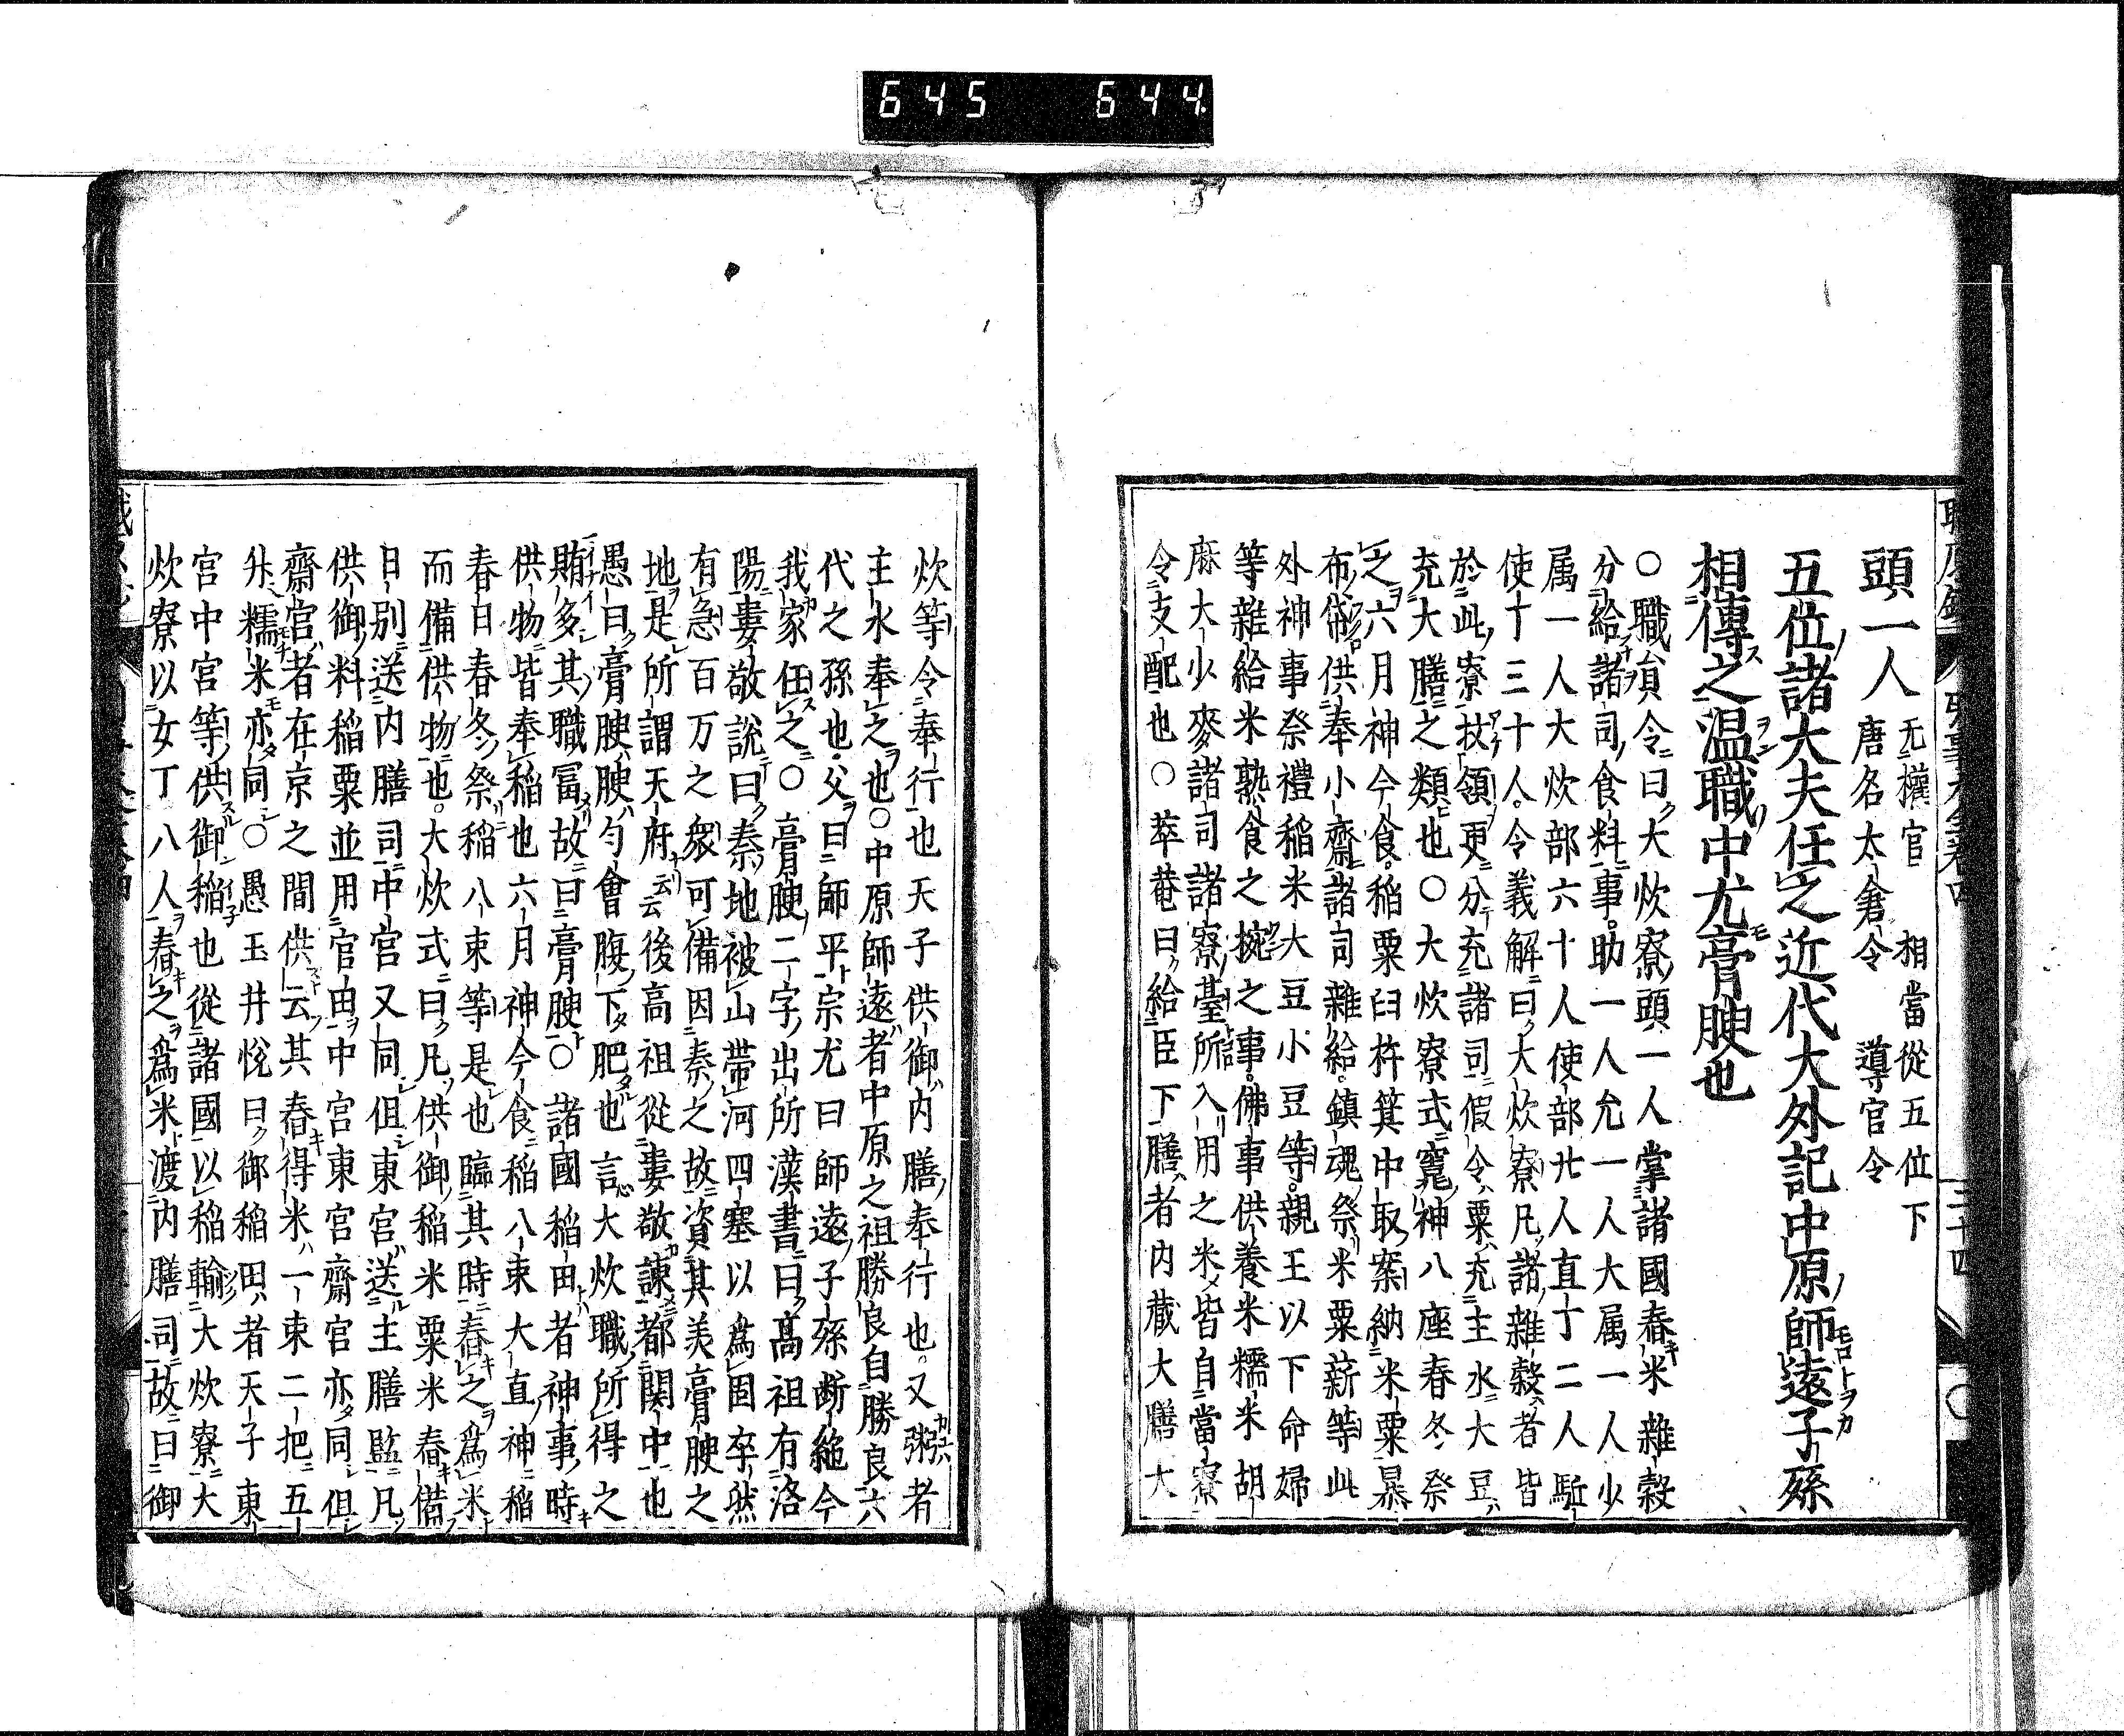 645 644
頭一人 无權官 相當從五位下
唐名太倉令 導官令
五位諸大夫任之近代大外記中原師遠子孫
相傳之温職中尤膏腴也
○職貟令曰大炊寮頭一人掌諸國舂米雜穀
分給諸司食料事助一人允一人大属一人少
属一人大炊部六十人使部廿人直丁二人駈
使丁三十人令義解曰大炊寮凡諸雜穀者皆
於此寮扙領更分充諸司假令粟充主水大豆
充大膳之類也○大炊寮式竃神八座春冬祭
之六月神今食稲粟臼杵箕中取案納米粟暴
布帒供奉小齋諸司雜給鎮魂祭米粟薪等此
外神事祭禮稲米大豆小豆等親王以下命婦
等雜給米熟食之擬之事佛事供養米糯米胡
麻大少麥諸司諸寮臺所入用之米皆自當寮
令支配也○萃菴曰給臣下膳者内蔵大膳大
炊等令奉行也天子供御内膳奉行也又粥者
主水奉之也○中原師遠者中原之祖勝良自勝良六
代之孫也父曰師平宗尤曰師遠子孫断絶今
我家任之○膏腴二字出所漢書曰高祖有洛
陽婁敬說曰秦地被山帶河四塞以爲固卒然
有急百万之衆可備因秦之故資其美膏腴之
地是所謂天府云云後高祖從婁敬諫都関中也
愚曰膏腴腴勺會腹下肥也言心大炊職所得之
賄多其職冨故曰膏腴○諸國稲田者神事時
供物皆奉稲也六月神今食稲八束大直神稲
春日春冬祭稲八束等是也臨其時舂之爲米
而備供物也大炊式曰凡供御稲米粟米舂備
日別送内膳司中宮又同但東宮送主膳監凡
供御料稲粟並用官田中宮東宮齋宮亦同但
齋宮者在京之間供云其舂得米一束二把五
升糯米亦同○愚玉井悅曰御稲田者天子東
宮中宮等供御稲也從諸國以稲輸大炊寮大
炊寮以女丁八人舂之爲米渡内膳司故曰御